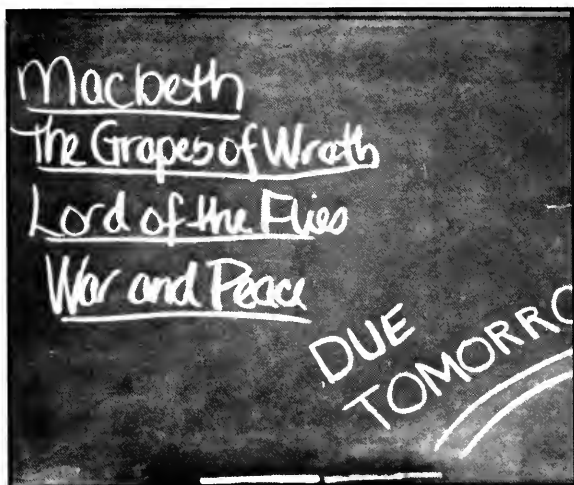 Macbeth
The Grapes of Wrath
Lord of the Flies
War and Peace
DUE
TOMORRO